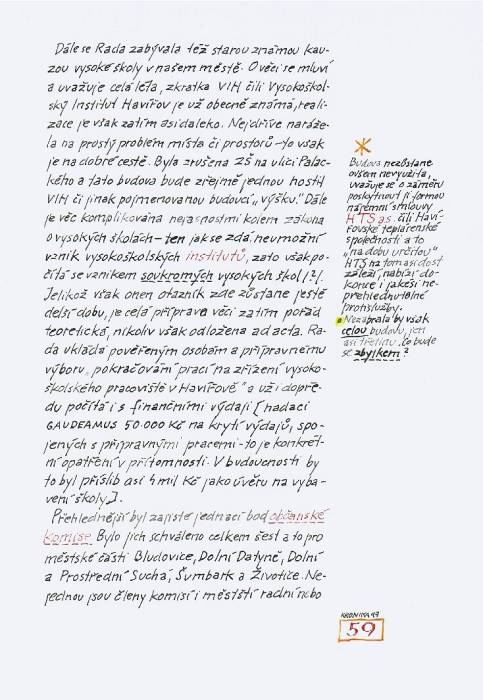 Dále se Rada zabývala též starou známou kau-
zou vysoké školy v našem městě. O věci se mluví
a uvažuje celá léta, zkratka VIH čili Vysokoškol-
ský Institut Havířov je už obecně známá, reali-
zace je však zatím asi daleko. Nejdříve naráže-
la na prostý problém místa či prostorů – to však
je na dobré cestě. Byla zrušena ZŠ na ulici Palac-
kého a tato budova bude zřejmě jednou hostit
VIH či jinak pojmenovanou budoucí „výšku." Dále
je věc komplikována nejasnostmi kolem zákona
o vysokých školách – ten jak se zdá, neumožní
vznik vysokoškolských institutů, zato však po-
čítá se vznikem soukromých vysokých škol (?).
Jelikož však onen otazník zde zůstane ještě
delší dobu, je celá příprava věci zatím pořád
teoretická, nikoliv však odložena ad acta. Ra-
da ukládá pověřeným osobám a přípravnému
výboru „pokračování prací na zřízení vysoko-
školského pracoviště v Havířově" a už i dopře-
du počítá i s finančními výdaji [nadaci
GAUDEAMUS 50.000 Kč na krytí výdajů, spo-
jených s přípravnými pracemi – to je konkrét-
ní opatření v přítomnosti. V budoucnosti by
to byl příslib asi 4 mil Kč jako úvěru na vyba-
vení školy].
Přehlednější byl zajisté jednací bod občanské
komise. Bylo jich schváleno celkem šest a to pro
městské části Bludovice, Dolní Datyně, Dolní
a Prostřední Suchá, Šumbark a Životice. Ne-
jednou jsou členy komisí i městští radní nebo
*
Budova nezůstane
ovšem nevyužita,
uvažuje se o záměru
poskytnout ji formou
nájemní smlouvy
HTS a.s. čili Haví-
řovské teplárenské
společnosti a to
„na dobu určitou"
HTS na tom asi dost
záleží, nabízí do-
konce i jakési ne-
přehlédnutelné
protislužby.
Nezabrala by však
celou budovu, jen
asi třetinu. Co bude
se zbytkem?
KRONIKA 97
59